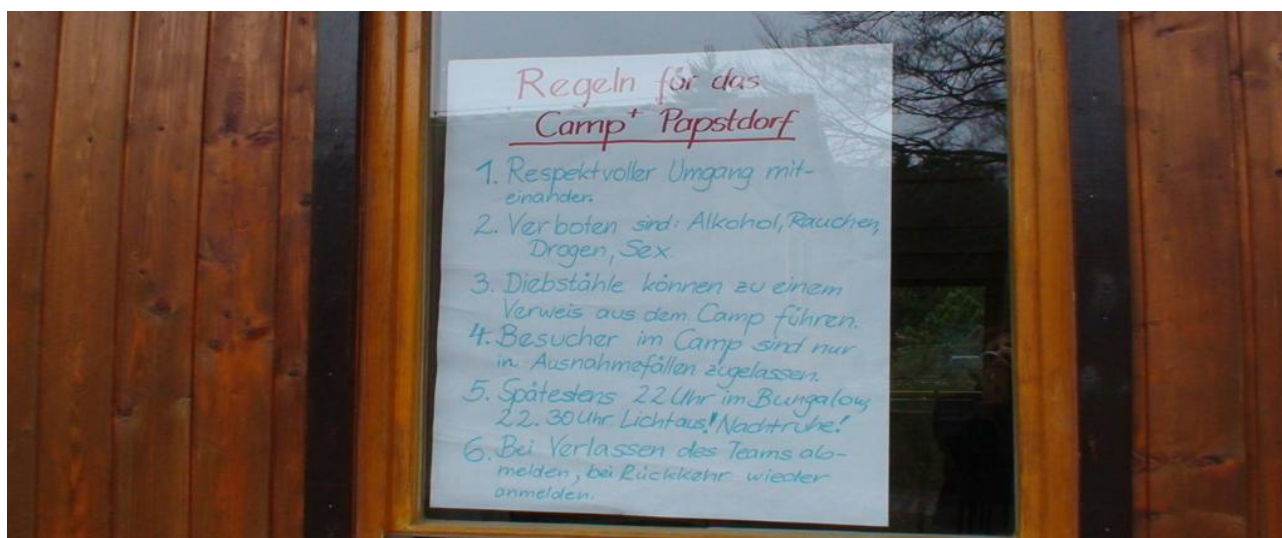 Regeln für das
Camp⁺ Papstdorf
1. Respektvoller Umgang mit-
einander.
2. Verboten sind: Alkohol, Rauchen,
Drogen, Sex
3. Diebstähle können zu einem
Verweis aus dem Camp führen.
4. Besucher im Camp sind nur
in Ausnahmefällen zugelassen.
5. Spätestens 22 Uhr im Bungalow,
22.30 Uhr Licht aus! Nachtruhe!
6. Bei Verlassen des Teams ab-
melden, bei Rückkehr wieder
anmelden.